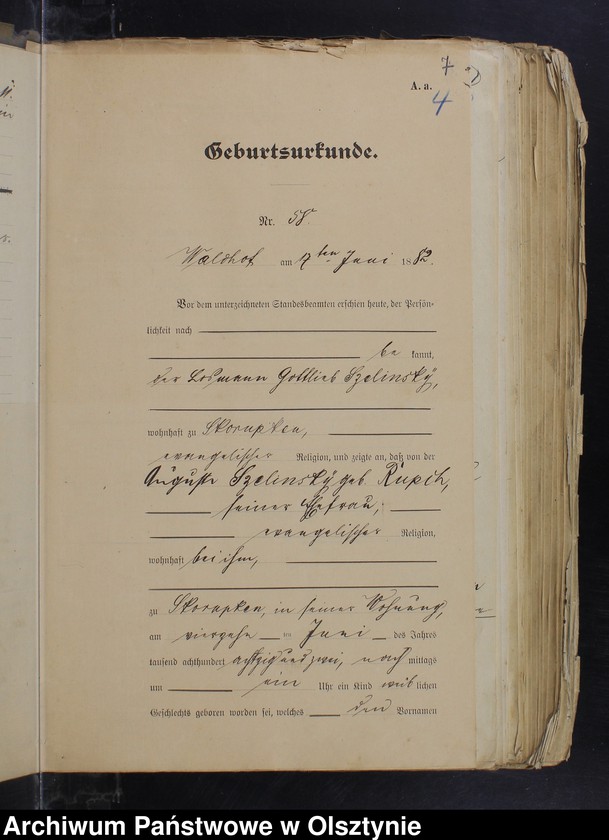 7
A. a.
4
Geburtsurkunde.
Nr. 58.
Waldhof am ten Juni 1882.
Vor dem unterzeichneten Standesbeamten erschien heute, der Persön-
lichkeit nach
be kannt,
der Losmann Gottlieb Szelinsky,
wohnhaft zu Skorupken,
evangelischer Religion, und zeigte an, daß von der
Auguste Szelinsky geb. Rupch,
seiner Ehefrau,
evangelischer Religion,
wohnhaft bei ihm,
zu Skorupken, in seiner Wohnung,
am Juni des Jahres
tausend achthundert achtzig und zwei, nach mittags
um ein Uhr ein Kind weib lichen
Geschlechts geboren worden sei, welches den Vornamen
Archiwum Państwowe w Olsztynie